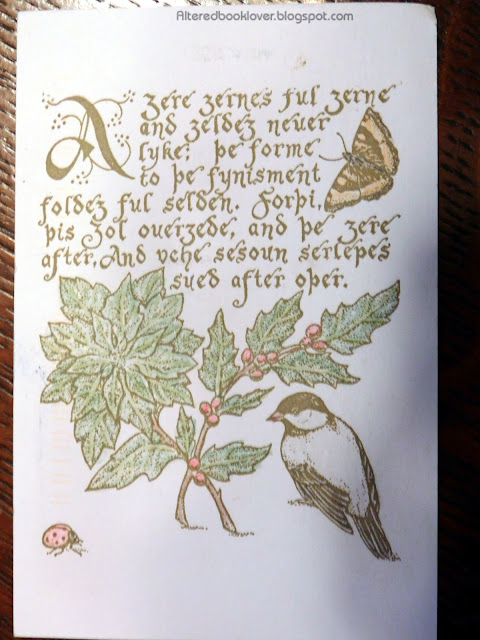 Alteredbooklover.blogspot.com
A ȝere ȝernes ful ȝerne
and ȝeldeȝ neuer
lyke; þe forme
to þe fynisment
foldeȝ ful selden. Forþi,
þis ȝol ouerȝede, and þe ȝere
after, And vche sesoun serlepes
sued after oþer.